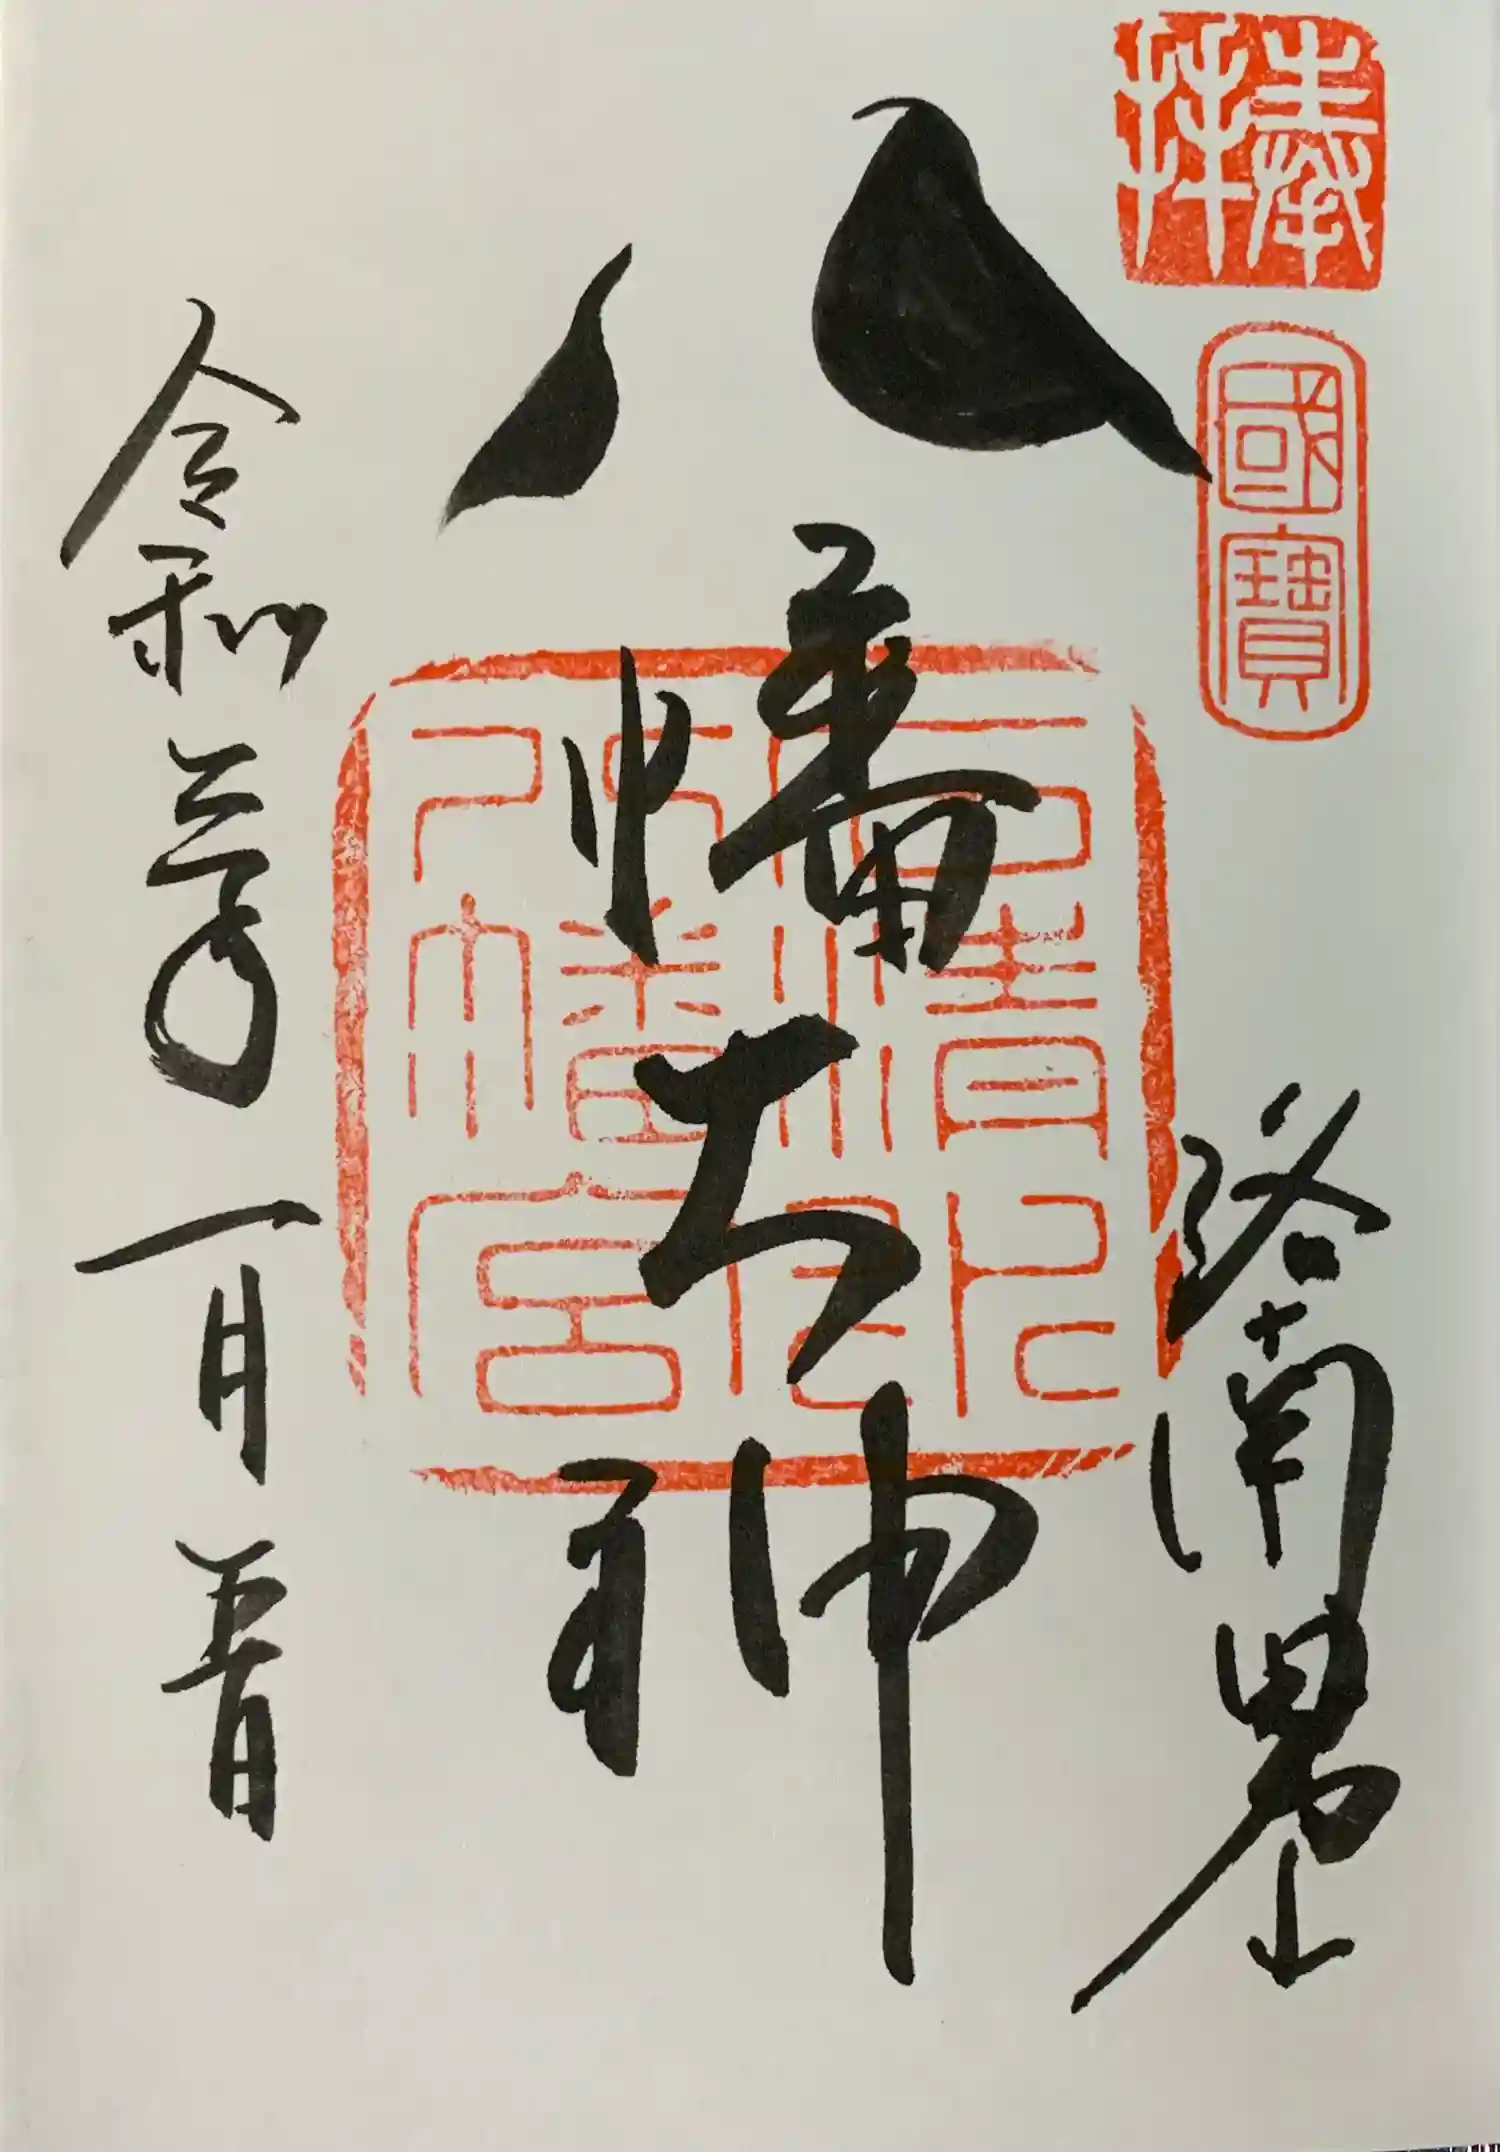 奉拝
國寶
洛南男山
八幡大神
石清水
八幡宮
令和三年一月五日